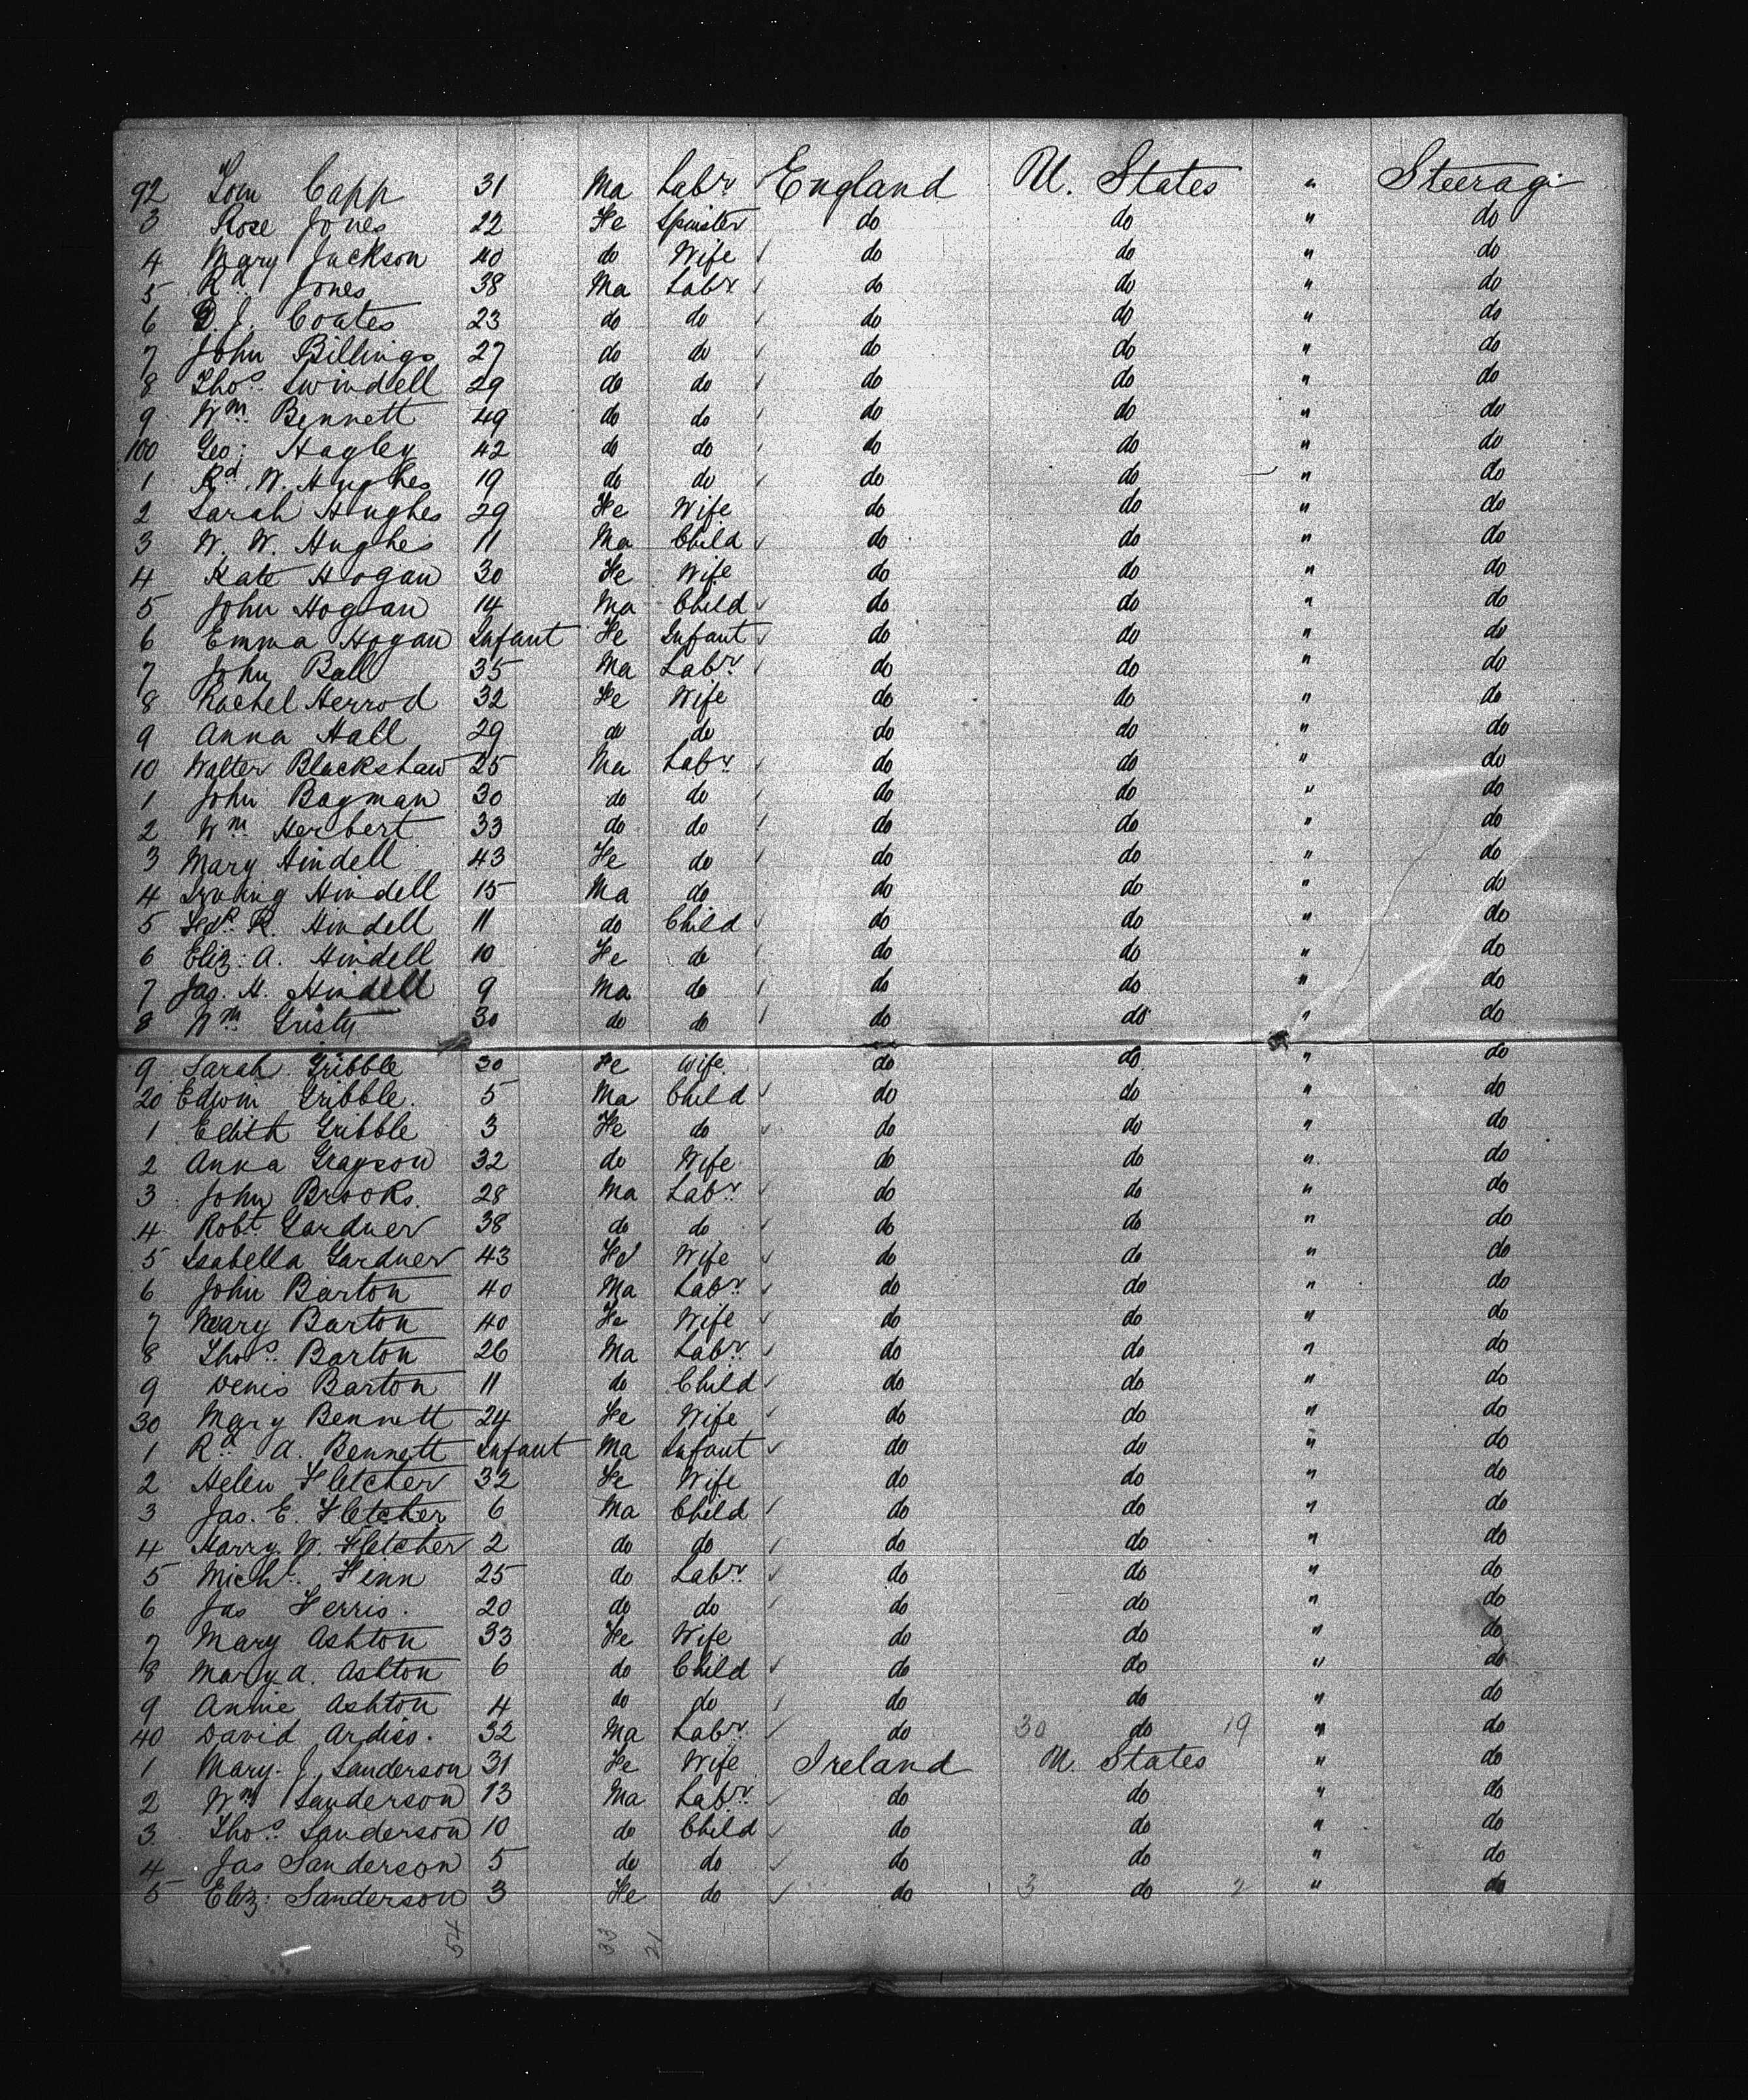 92 Tom Capp 31 Ma Labr England U. States " Steerage
3 Rose Jones 22 Fe Spinster do do " do
4 Mary Jackson 40 do Wife do do " do
5 Rd. Jones 38 Ma Labr do do " do
6 D. J. Coates 23 do do do do " do
7 John Billings 27 do do do do " do
8 Thos. Swindell 29 do do do do " do
9 Wm. Bennett 49 do do do do " do
100 Geo: Hagley 42 do do do do " do
1 Rd. W. Hughes 19 do do do do " do
2 Sarah Hughes 29 Fe Wife do do " do
3 W. W. Hughes 11 Ma Child do do " do
4 Kate Hogan 30 Fe Wife do do " do
5 John Hogan 14 Ma Child do do " do
6 Emma Hogan Infant Fe Infant do do " do
7 John Ball 35 Ma Labr. do do " do
8 Rachel Herrod 32 Fe Wife do do " do
9 Anna Hall 29 do do do do " do
10 Walter Blackshaw 25 Ma Labr. do do " do
1 John Bagman 30 do do do do " do
2 Wm. Herbert 33 do do do do " do
3 Mary Hindell 43 Fe do do do " do
4 Hindell 15 Ma do do do " do
5 R. Hindell 11 do Child do do " do
6 Eliz: A. Hindell 10 Fe do do do " do
7 Jas. H. Hindell 9 Ma do do do " do
8 Wm. Gristy 30 do do do do " do
9 Sarah Gribble 30 Fe Wife do do " do
20 Edwin Gribble. 5 Ma Child do do " do
1 Edith Gribble 3 Fe do do do " do
2 Anna Grayson 32 do Wife do do " do
3 John Brooks. 28 Ma Labr. do do " do
4 Robt. Gardner 38 do do do do " do
5 Isabella Gardner 43 Fe Wife do do " do
6 John Barton 40 Ma Labr. do do " do
7 Mary Barton 40 Fe Wife do do " do
8 Thos. Barton 26 Ma Labr. do do " do
9 Denis Barton 11 do Child do do " do
30 Mary Bennett 24 Fe Wife do do " do
1 Rd. A. Bennett Infant Ma Infant do do " do
2 Helen Fletcher 32 Fe Wife do do " do
3 Jas. E. Fletcher 6 Ma Child do do " do
4 Harry W. Fletcher 2 do do do do " do
5 Michl. Finn 25 do Labr. do do " do
6 Jas Ferris. 20 do do do do " do
7 Mary Ashton 33 Fe Wife do do " do
8 Mary A. Ashton 6 do Child do do " do
9 Annie Ashton 4 do do do do " do
40 David Ardiss. 32 Ma Labr. do 30 do 19 " do
1 Mary. J. Sanderson 31 Fe Wife Ireland U. States " do
2 Wm. Sanderson 13 Ma Labr. do do " do
3 Thos. Sanderson 10 do Child do do " do
4 Jas Sanderson 5 do do do do " do
5 Eliz: Sanderson 3 Fe do do 3 do 2 " do
54 33 21